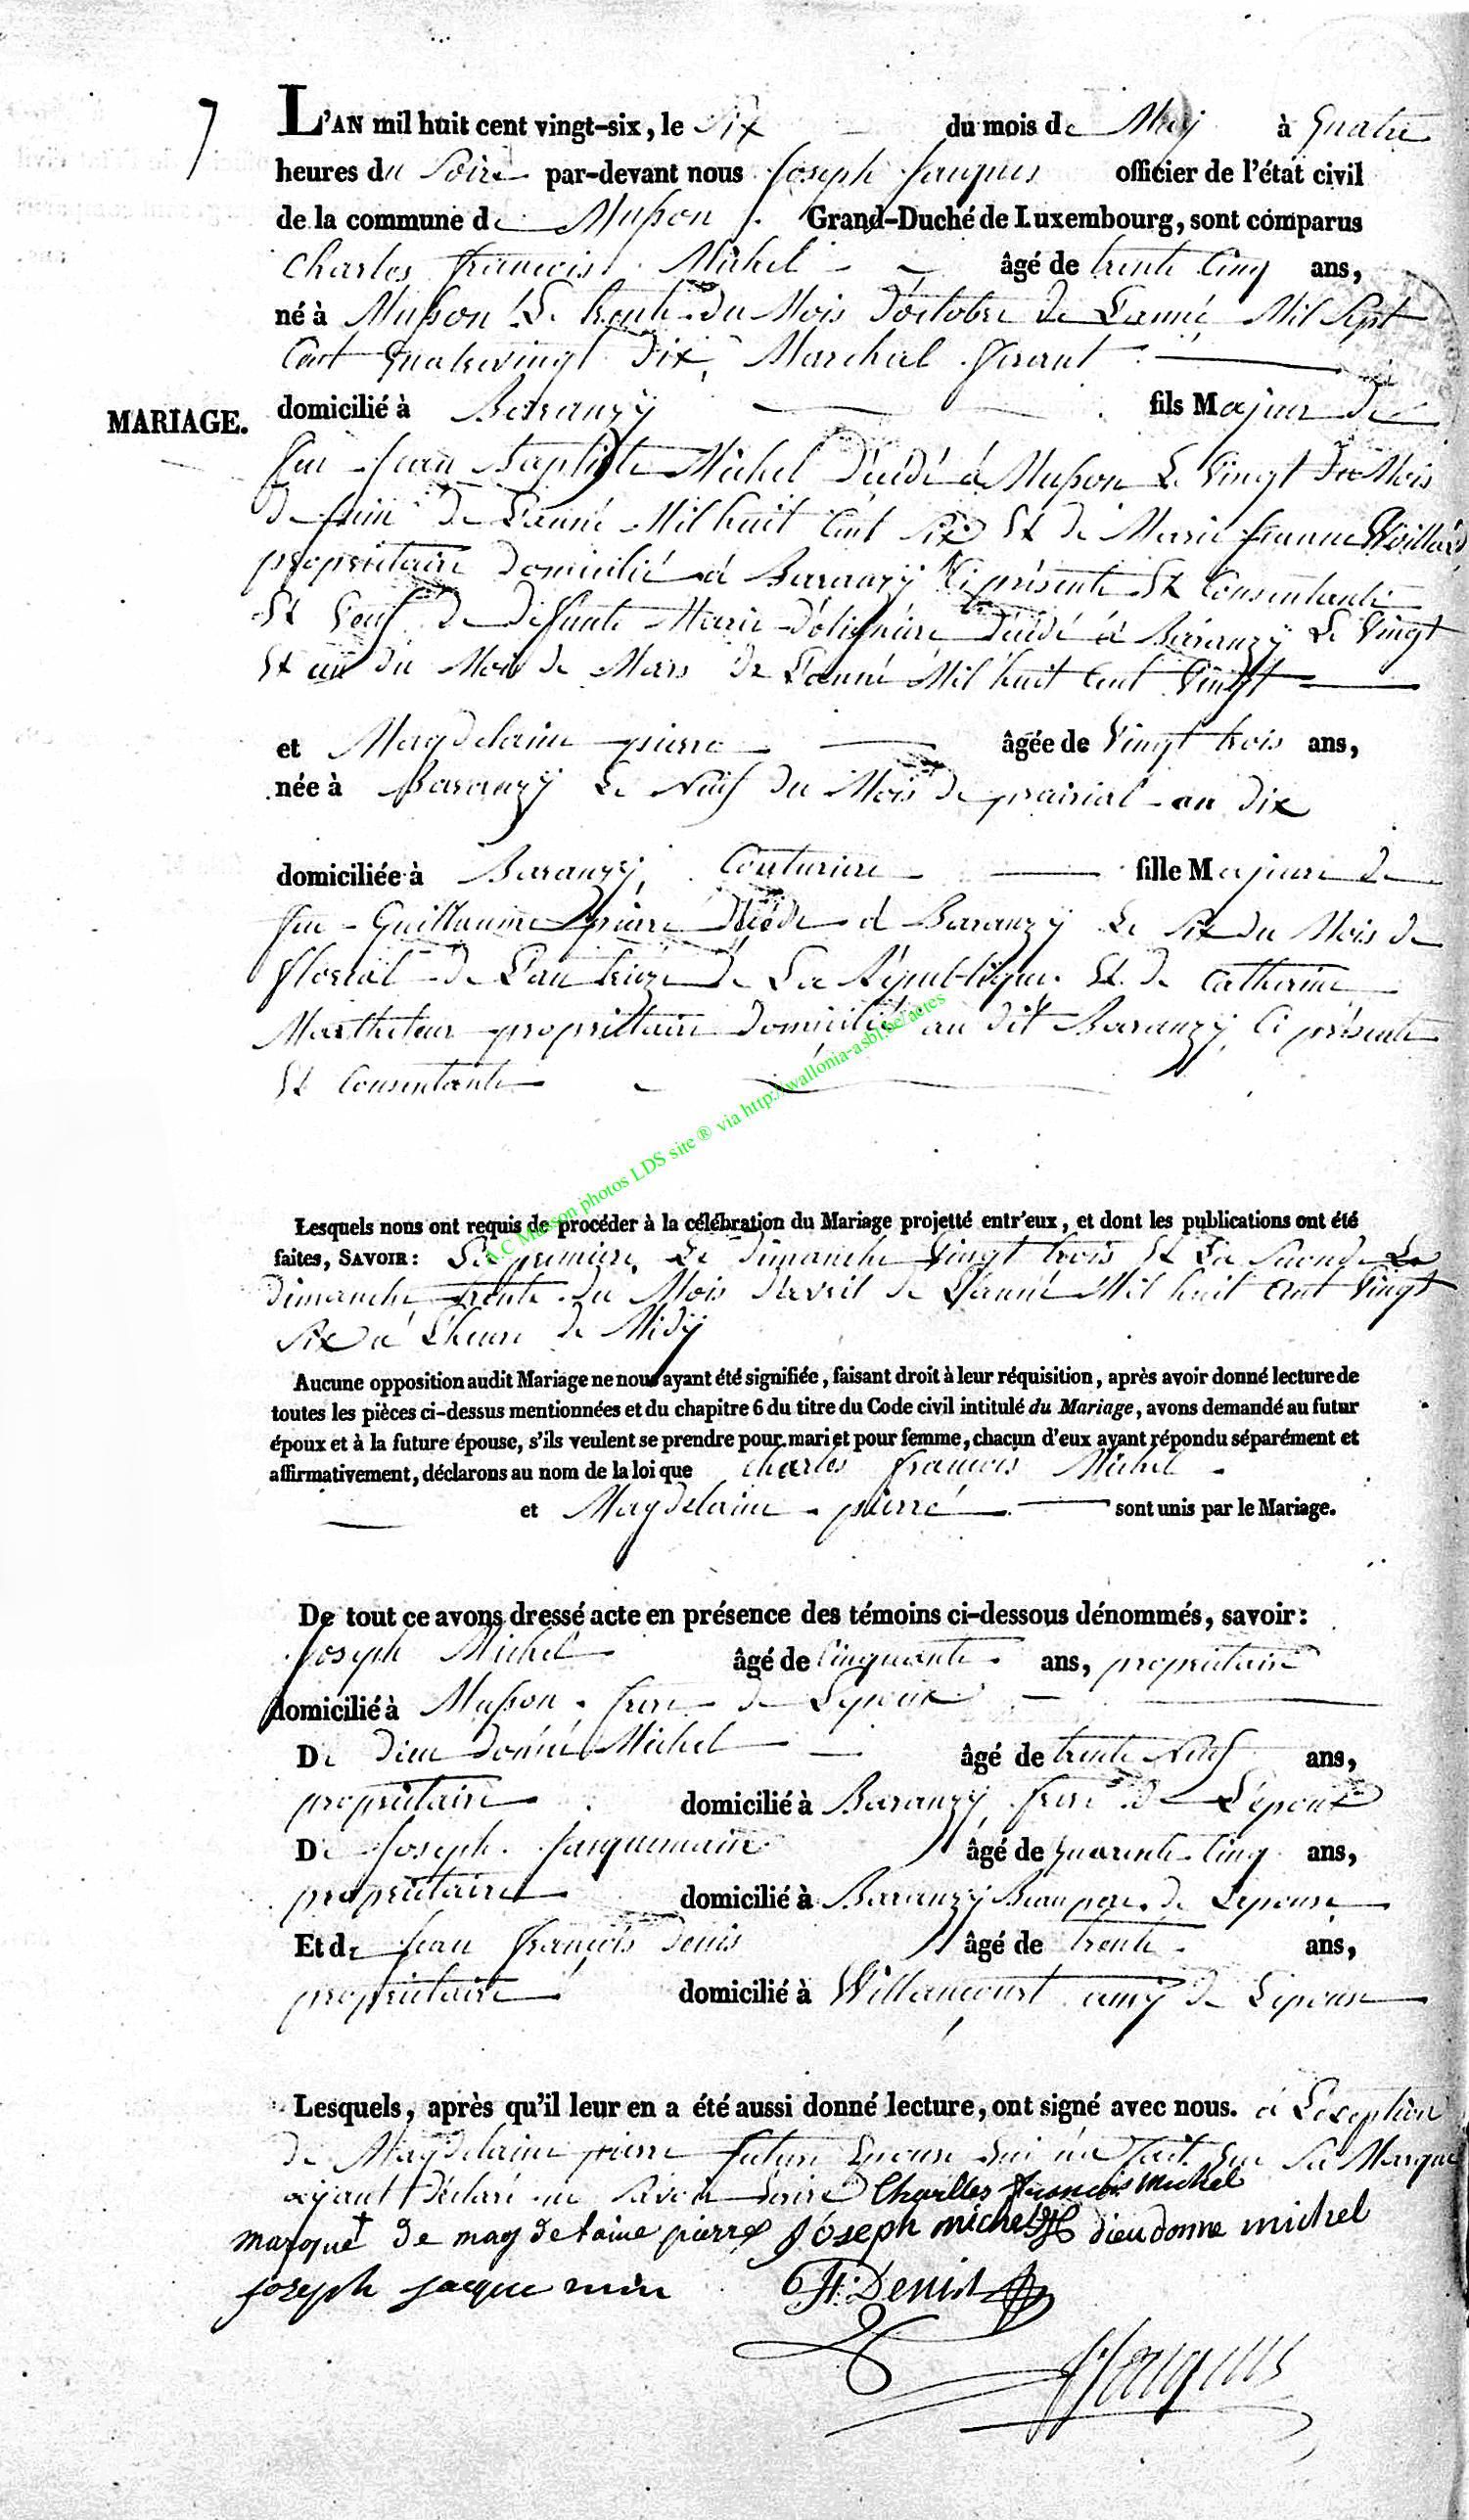 7
L'AN mil huit cent vingt-six, le Six du mois de May à quatre
heures du Soire par-devant nous Joseph Jaques officier de l'état civil
de la commune de Musson. Grand-Duché de Luxembourg, sont comparus
Charles françois Michel âgé de trente Cinq ans,
né à Musson Le trente du Mois D'octobre de L'anné Mil Sept
Cent quatrevingt Dix, Marchal ferant
MARIAGE.
domicilié à Baranzÿ fils Majeur De
feu Jean Baptiste Michel Décidé à Musson Le Vingt du Mois
de juin de L'anné Mil huit Cent Six Et de Marie Jeanne
propriétaire Domicilié à Baranzÿ Ci présente Et Consentante
Et Veuf De Defunte Marie Décidé à Baranzÿ Le Vingt
Et un du Mois de Mars de L'anné Mil huit Cent Vingt
et Magdelaine pierre âgée de Vingt trois ans,
née à Baranzÿ Le Neuf du Mois de prairial an Dix
domiciliée à Baranzÿ, Couturiere fille Majeure De
feu Guillaume pierre Décédé à Baranzÿ Le Six du Mois de
floréal de L'an treize De La République. Et de Catherine
propriétaire Domicilié au dit Baranzÿ Ci présente
Et Consentante
A.C Musson photos LDS site ® via http://wallonia-asbl.be/actes
Lesquels nous ont requis de procéder à la célébration du Mariage projetté entr'eux, et dont les publications ont été
faites, SAVOIR: La premiere Le Dimanche Vingt trois Et La Seconde Le
Dimanche trente du Mois d'avril de L'anné Mil huit Cent Vingt
Six à L'heure de Midÿ
Aucune opposition audit Mariage ne nous ayant été signifiée, faisant droit à leur réquisition, après avoir donné lecture de
toutes les pièces ci-dessus mentionnées et du chapitre 6 du titre du Code civil intitulé du Mariage, avons demandé au futur
époux et à la future épouse, s'ils veulent se prendre pour mari et pour femme, chacun d'eux ayant répondu séparément et
affirmativement, déclarons au nom de la loi que Charles françois Michel
et Magdelaine pierre sont unis par le Mariage.
De tout ce avons dressé acte en présence des témoins ci-dessous dénommés, savoir:
Joseph Michel âgé de Cinquante ans, propriétaire
domicilié à Musson frere de L'epoux
De Dieu donné Michel âgé de trente Neuf ans,
propriétaire domicilié à Baranzÿ frere de L'epoux
De Joseph Jacquemain âgé de quarente Cinq ans,
propriétaire domicilié à Baranzÿ Beau pere de L'epouse
Et de Jean françois Denis âgé de trente ans,
propriétaire domicilié à Willancourt amÿ de L'epouse
Lesquels, après qu'il leur en a été aussi donné lecture, ont signé avec nous. à L'exseption
de Magdelaine pierre future Epouse qui n'a fait que Sa Marque
ayant Déclaré ne Savoir Ecrire Charlles françois michel
marque de magdelaine pierre Joseph michel dieudonne michel
joseph jacquemin Denis
Jaques